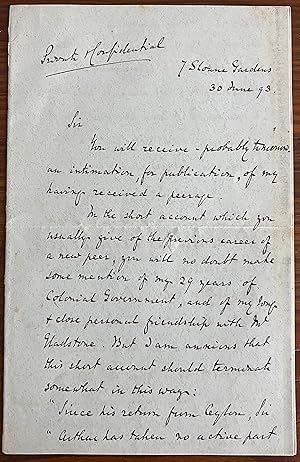 Private & Confidential
7 Sloane Gardens
30 June 93
Sir
You will receive – probably tomorrow
an intimation, for publication, of my
having received a peerage.
In the short account which you
usually give of the previous career of
a new peer, you will no doubt make
some mention of my 29 years of
Colonial Government, and of my long
& close personal friendship with Mr
Gladstone. But I am anxious that
this short account should terminate
somewhat in this way:
"Since his return from Ceylon, Sir
"Arthur has taken no active part